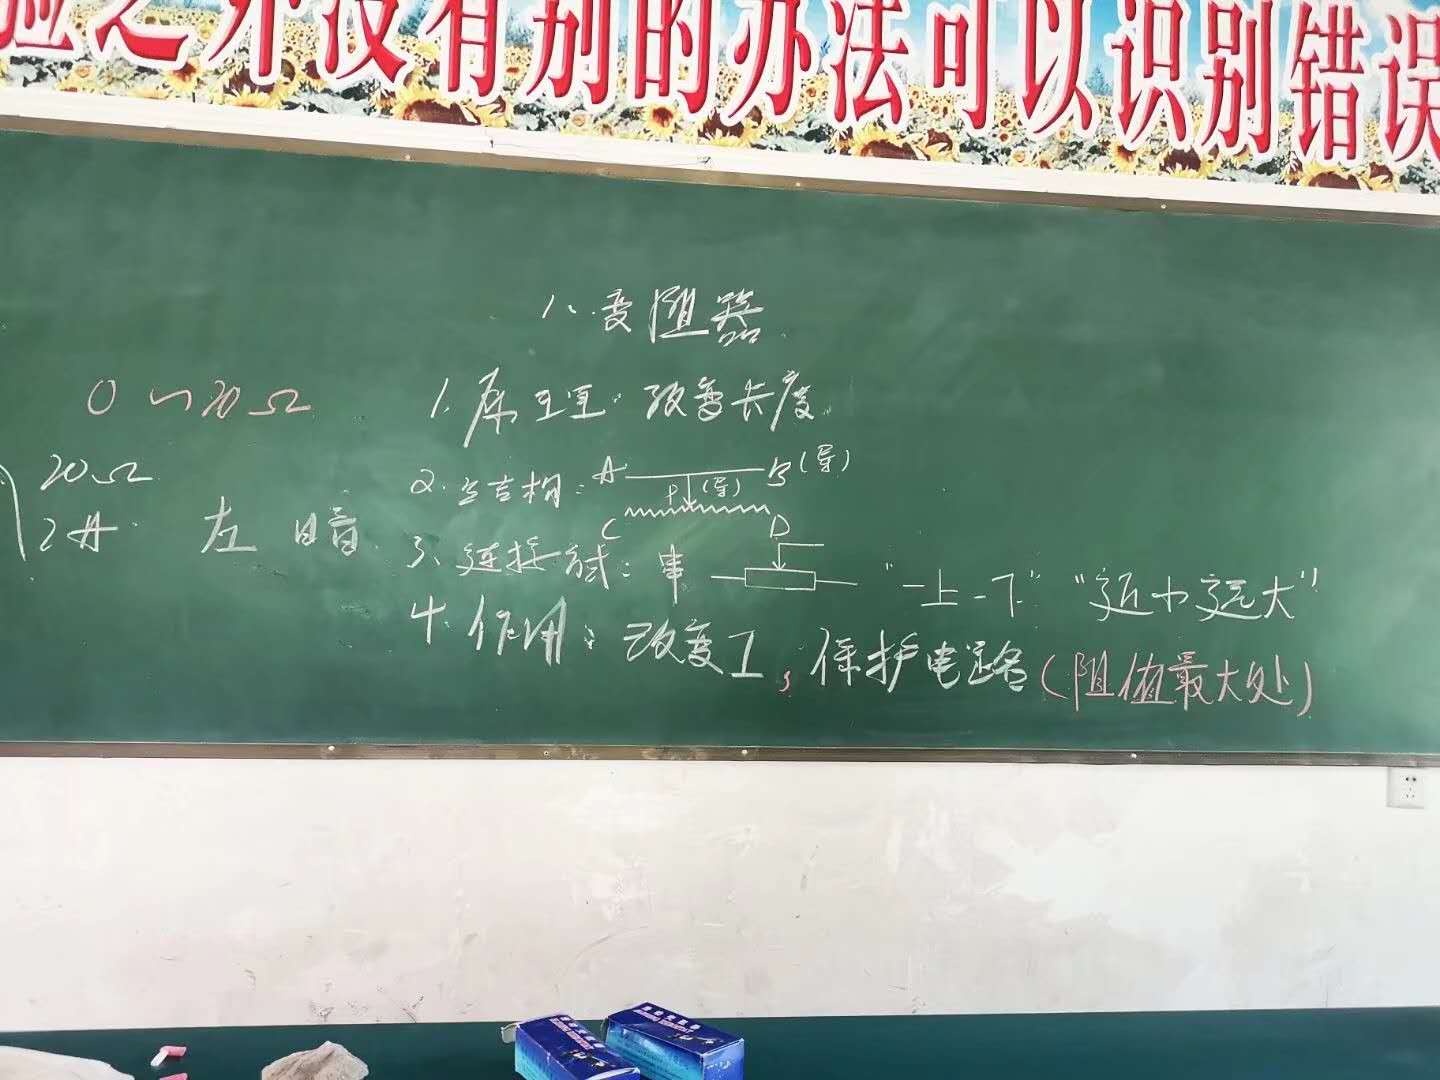 验之外没有别的办法可以识别错误
八、变阻器
1、原理:改变长度
2、结构:A B(导)
P (导)
C D
3、连接方式:串 "一上一下" "近小远大"
4、作用:改变I,保护电路(阻值最大处)
0~20Ω
20Ω
2A
左 暗